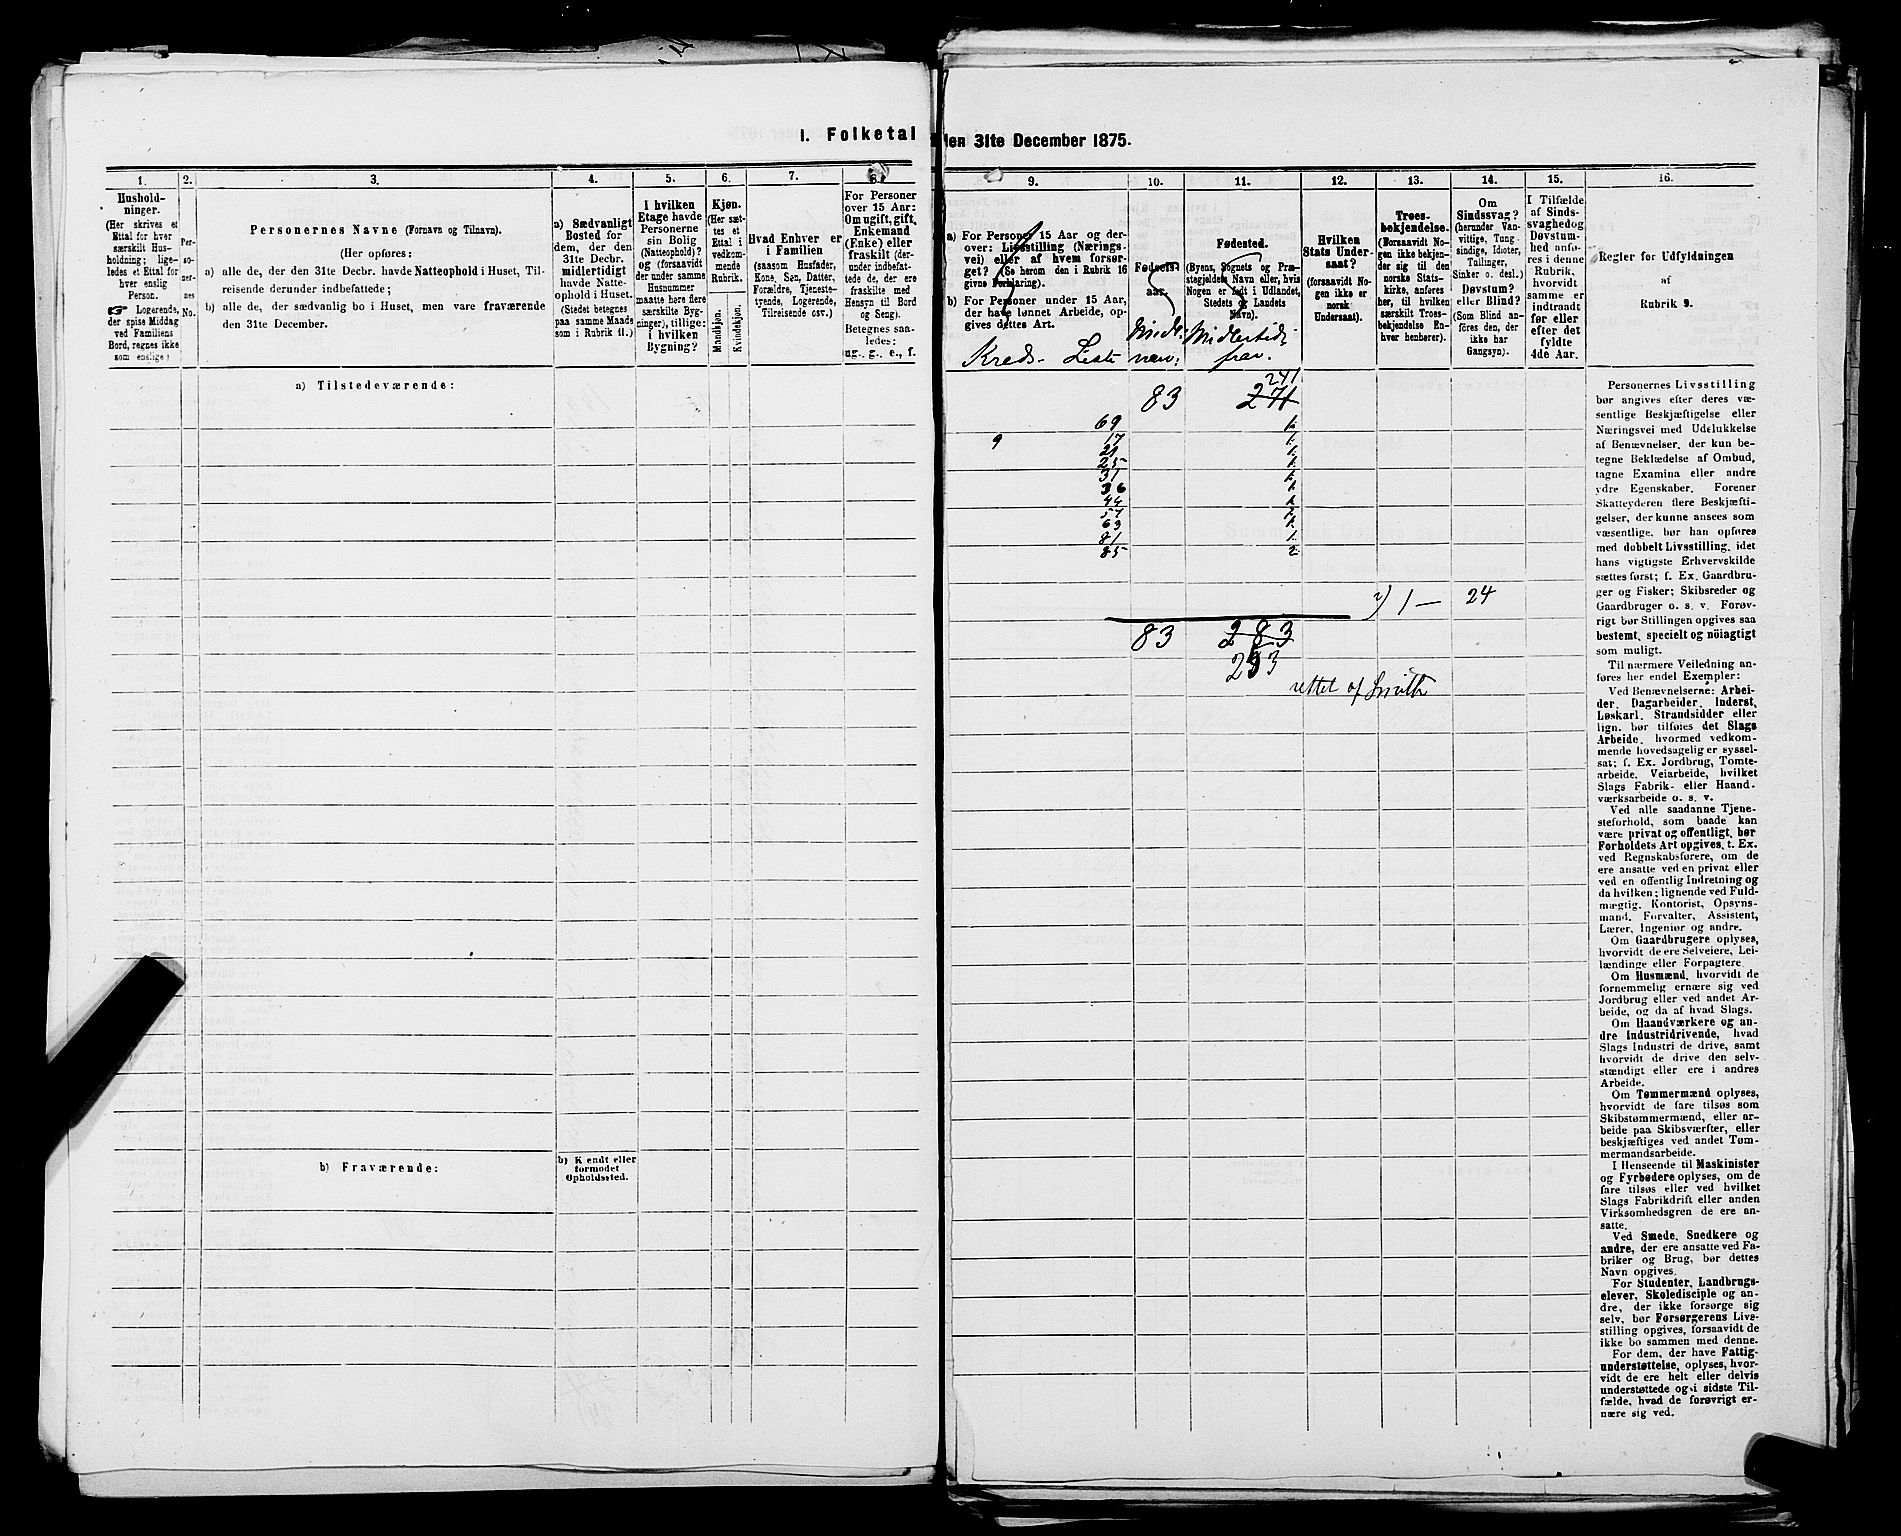 I. Folketal
den 31te December 1875.
1.
2.
3.
4.
5.
6.
7.
8.
Hushold-
ninger.
(Her skrives et
Ettal for hver
særskilt Hus-
holdning; lige-
ledes et Ettal for
hver enslig
Person.
☞ Logerende,
der spise Middag
ved Familiens
Bord, regnes ikke
som enslige)
Per-
so-
ner-
nes
No.
Personernes Navne (Fornavn og Tilnavn).
(Her opføres:
a) alle de, der den 31te Decbr. havde Natteophold i Huset, Til-
reisende derunder indbefattede;
b) alle de, der sædvanlig bo i Huset, men vare fraværende
den 31te December.
a) Sædvanligt
Bosted for
dem, der den
31te Decbr.
midlertidigt
havde Natte-
ophold i Huset.
(Stedet betegnes
paa samme Maade
som i Rubrik 11.)
I hvilken
Etage havde
Personerne
sin Bolig
(Natteophold)?
og (forsaavidt
der under samme
Husnummer
maatte høre flere
særskilte Byg-
ninger), tillige:
i hvilken
Bygning?
Kjøn.
(Her sæt-
tes et
Ettal i
vedkom-
mende
Rubrik.
Mandkjøn.
Kvindekjøn.
Hvad Enhver er
i Familien
(saasom Husfader,
Kone, Søn, Datter,
Forældre, Tjeneste-
tyende, Logerende,
Tilreisende osv.)
For Personer
over 15 Aar:
Om ugift, gift,
Enkemand
(Enke) eller
fraskilt (der-
under indbefat-
tede de, der ere
fraskilte med
Hensyn til Bord
og Seng).
Betegnes saa-
ledes:
ug., g., e., f.
a) Tilstedeværende:
b) Fraværende:
b) Kjendt eller
formodet
Opholdssted.
9.
10.
11.
12.
13.
14.
15.
16.
a) For Personer 15 Aar og der-
over: Livsstilling (Nærings-
vei) eller af hvem forsør-
get? (Se herom den i Rubrik 16
givne Forklaring).
b) For Personer under 15 Aar,
der have lønnet Arbeide, op-
gives dettes Art.
Fødsels-
aar.
Fødested.
(Byens, Sognets og Præ-
stegjeldets Navn eller, hvis
Nogen er født i Udlandet,
Stedets og Landets
Navn).
Hvilken
Stats Under-
saat?
(forsaavidt No-
gen ikke er
norsk
Undersaat).
Troes-
bekjendelse.
(Forsaavidt No-
gen ikke bekjen-
der sig til den
norske Stats-
kirke, anføres
her, til hvilken
særskilt Troes-
bekjendelse En-
hver henhører).
Om
Sindssvag?
(herunder Van-
vittige, Tung-
sindige, Idioter,
Tullinger,
Sinker o. desl.)
Døvstum?
eller Blind?
(Som Blind an-
føres den, der
ikke har
Gangsyn).
I Tilfælde
af Sinds-
svaghed og
Døvstum-
hed anfø-
res i denne
Rubrik,
hvorvidt
samme er
indtraadt
før eller
efter det
fyldte
4de Aar.
Regler for Udfyldningen
af
Rubrik 9.
Kreds- Liste
Midl:
nær:
Midlertidi-
frav.
241
83 271
69 1.
9 17 1.
21 1.
25 1.
31 1.
36 1.
44 1.
57 1.
63 1.
81 1.
85 2
2) 1 — 24
83 283
253
rettet af Smith
Personernes Livsstilling
bør angives efter deres væ-
sentlige Beskjæftigelse eller
Næringsvei med Udelukkelse
af Benævnelser, der kun be-
tegne Beklædelse af Ombud,
tagne Examina eller andre
ydre Egenskaber. Forener
Skatteyderen flere Beskjæfti-
gelser, der kunne ansees som
væsentlige, bør han opføres
med dobbelt Livsstilling, idet
hans vigtigste Erhvervskilde
sættes først; f. Ex. Gaardbru-
ger og Fisker; Skibsreder og
Gaardbruger o. s. v. Forøv-
rigt bør Stillingen opgives saa
bestemt, specielt og nöiagtigt
som muligt.
Til nærmere Veiledning an-
føres her endel Exempler:
Ved Benævnelserne: Arbei-
der, Dagarbeider, Inderst,
Løskarl, Strandsidder eller
lign. bør tilføies det Slags
Arbeide, hvormed vedkom-
mende hovedsagelig er syssel-
sat; f. Ex. Jordbrug, Tomte-
arbeide, Veiarbeide, hvilket
Slags Fabrik- eller Haand-
værksarbeide o. s. v.
Ved alle saadanne Tjene-
steforhold, som baade kan
være privat og offentligt, bør
Forholdets Art opgives, t. Ex.
ved Regnskabsførere, om de
ere ansatte ved en privat eller
ved en offentlig Indretning og
da hvilken; lignende ved Fuld-
mægtig, Kontorist, Opsyns-
mand, Forvalter, Assistent,
Lærer, Ingeniør og andre.
Om Gaardbrugere oplyses,
hvorvidt de ere Selveiere, Lei-
lændinge eller Forpagtere.
Om Husmænd, hvorvidt de
fornemmelig ernære sig ved
Jordbrug eller ved andet Ar-
beide, og da af hvad Slags.
Om Haandværkere og an-
dre Industridrivende, hvad
Slags Industri de drive, samt
hvorvidt de drive den selv-
stændigt eller ere i andres
Arbeide.
Om Tømmermænd oplyses,
hvorvidt de fare tilsøs som
Skibstømmermænd, eller ar-
beide paa Skibsværfter, eller
beskjæftiges ved andet Tøm-
mermandsarbeide.
I Henseende til Maskinister
og Fyrbødere oplyses, om de
fare tilsøs eller ved hvilket
Slags Fabrikdrift eller anden
Virksomhedsgren de ere an-
satte.
Ved Smede, Snedkere og
andre, der ere ansatte ved Fa-
briker og Brug, bør dettes
Navn opgives.
For Studenter, Landbrugs-
elever, Skoledisciple og an-
dre, der ikke forsørge sig
selv, bør Forsørgerens Livs-
stilling opgives, forsaavidt de
ikke bo sammen med denne.
For dem, der have Fattig-
understøttelse, oplyses, hvor-
vidt de ere helt eller delvis
understøttede og i sidste Til-
fælde, hvad de forøvrigt er-
nære sig ved.